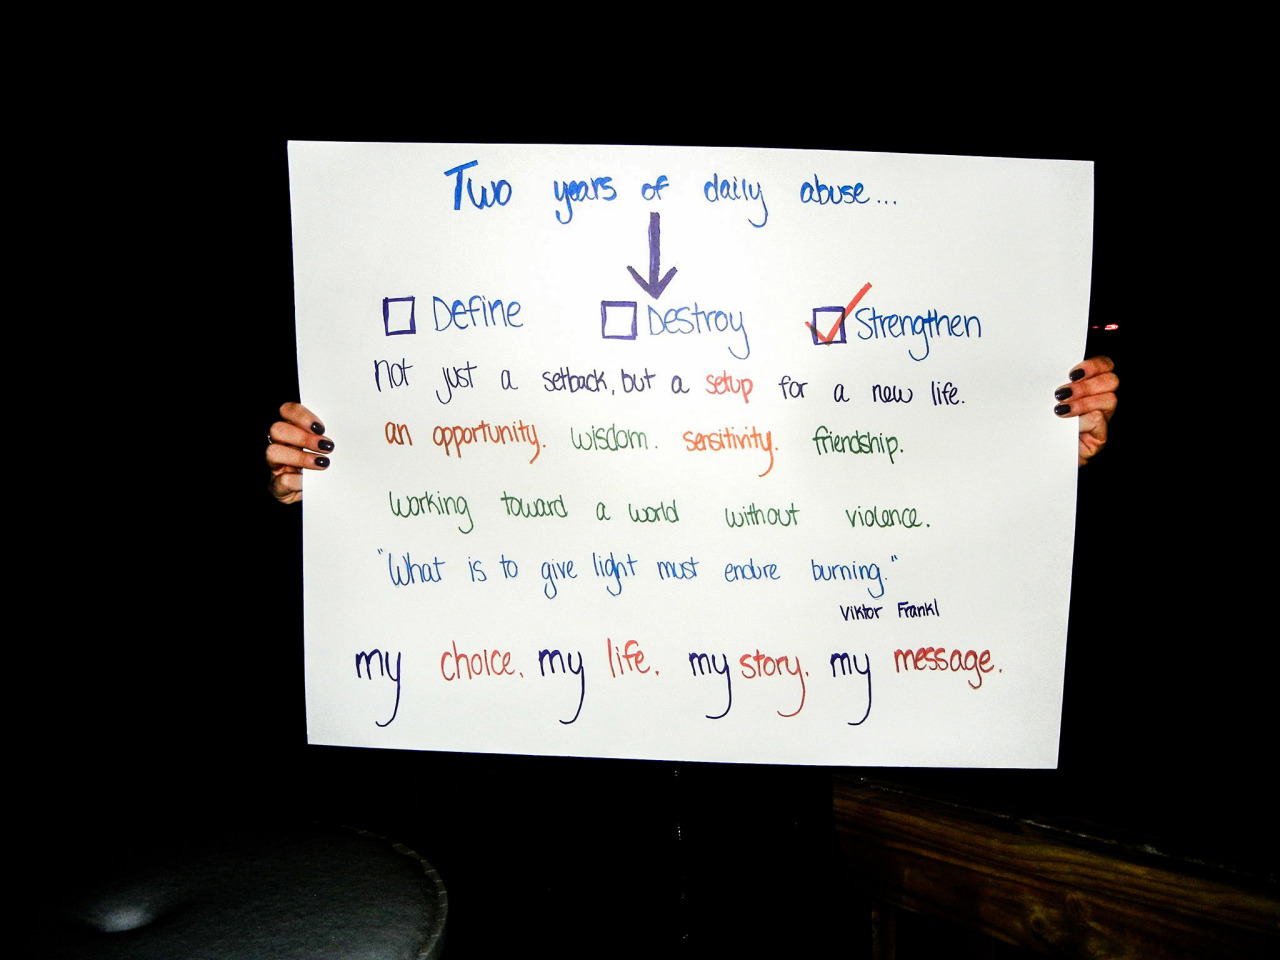 Two years of daily abuse...
Define Destroy Strengthen
not just a setback, but a setup for a new life.
an opportunity. wisdom. sensitivity. friendship.
working toward a world without violence.
"What is to give light must endure burning."
Viktor Frankl
my choice. my life. my story. my message.